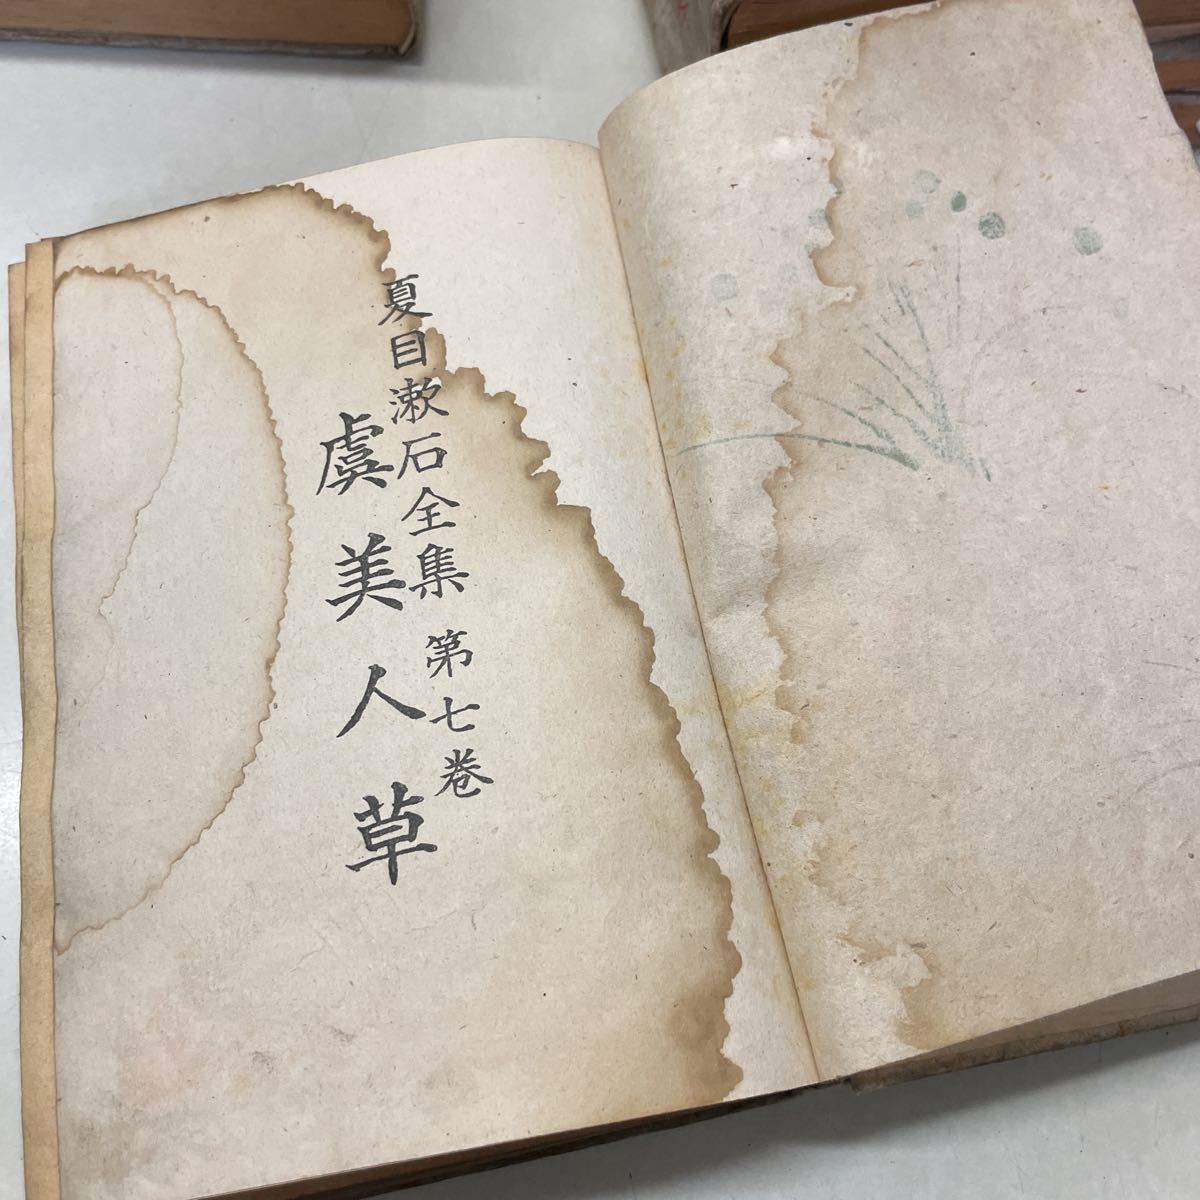 夏目漱石全集 第七巻
虞美人草